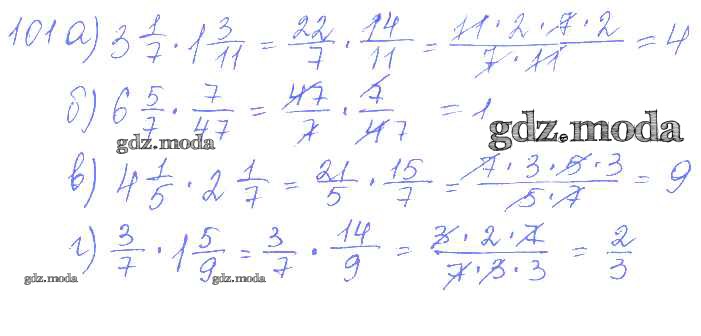 101 а) 3 1/7 · 1 3/11 = 22/7 · 14/11 = 11 · 2 · 7 · 2 / 7 · 11 = 4
б) 6 5/7 · 7/47 = 47/7 · 7/47 = 1
gdz.moda
gdz.moda
в) 4 1/5 · 2 1/7 = 21/5 · 15/7 = 7 · 3 · 5 · 3 / 5 · 7 = 9
г) 3/7 · 1 5/9 = 3/7 · 14/9 = 3 · 2 · 7 / 7 · 3 · 3 = 2/3
gdz.moda
gdz.moda